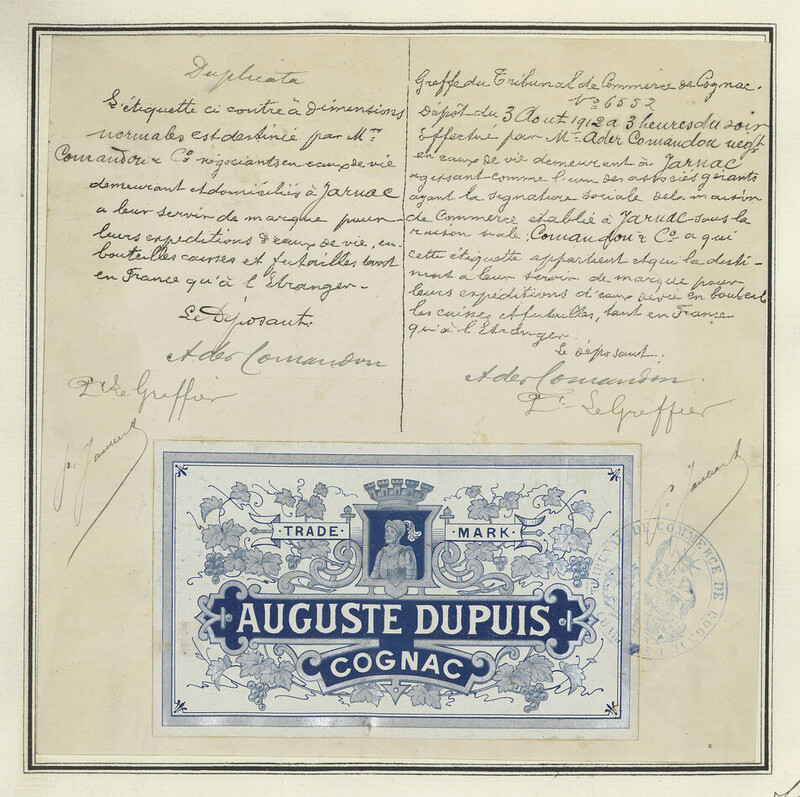 Duplicata
L'étiquette ci contre à dimensions
normales est destinée par Mrs
Comandon & Co négociants en eaux de vie
demeurant et domiciliés à Jarnac
a leur servir de marque pour
leurs expéditions d'eaux de vie, en
bouteilles caisses et futailles tant
en France qu'à l'Etranger.
Le Déposant.
Ader Comandon
Pr Le Greffier
Greffe du Tribunal de Commerce de Cognac.
No 6552
Dépôt du 3 Aout 1912 a 3 heures du soir
Effectué par Mr. Ader Comandon negt
en eaux de vie demeurant à Jarnac
agissant comme l'un des associés gérants
ayant la signature sociale de la maison
de Commerce etablie à Jarnac sous la
raison sociale, Comandon & Co a qui
cette étiquette appartient et qui la desti-
nent a leur servir de marque pour
leurs expéditions d'eaux de vie en bouteil
les caisses et futailles, tant en France
qu'à l'Etranger
Le déposant.
Ader Comandon.
Pr Le Greffier
TRADE MARK
AUGUSTE DUPUIS
COGNAC
TRIBUNAL DE COMMERCE DE COGNAC